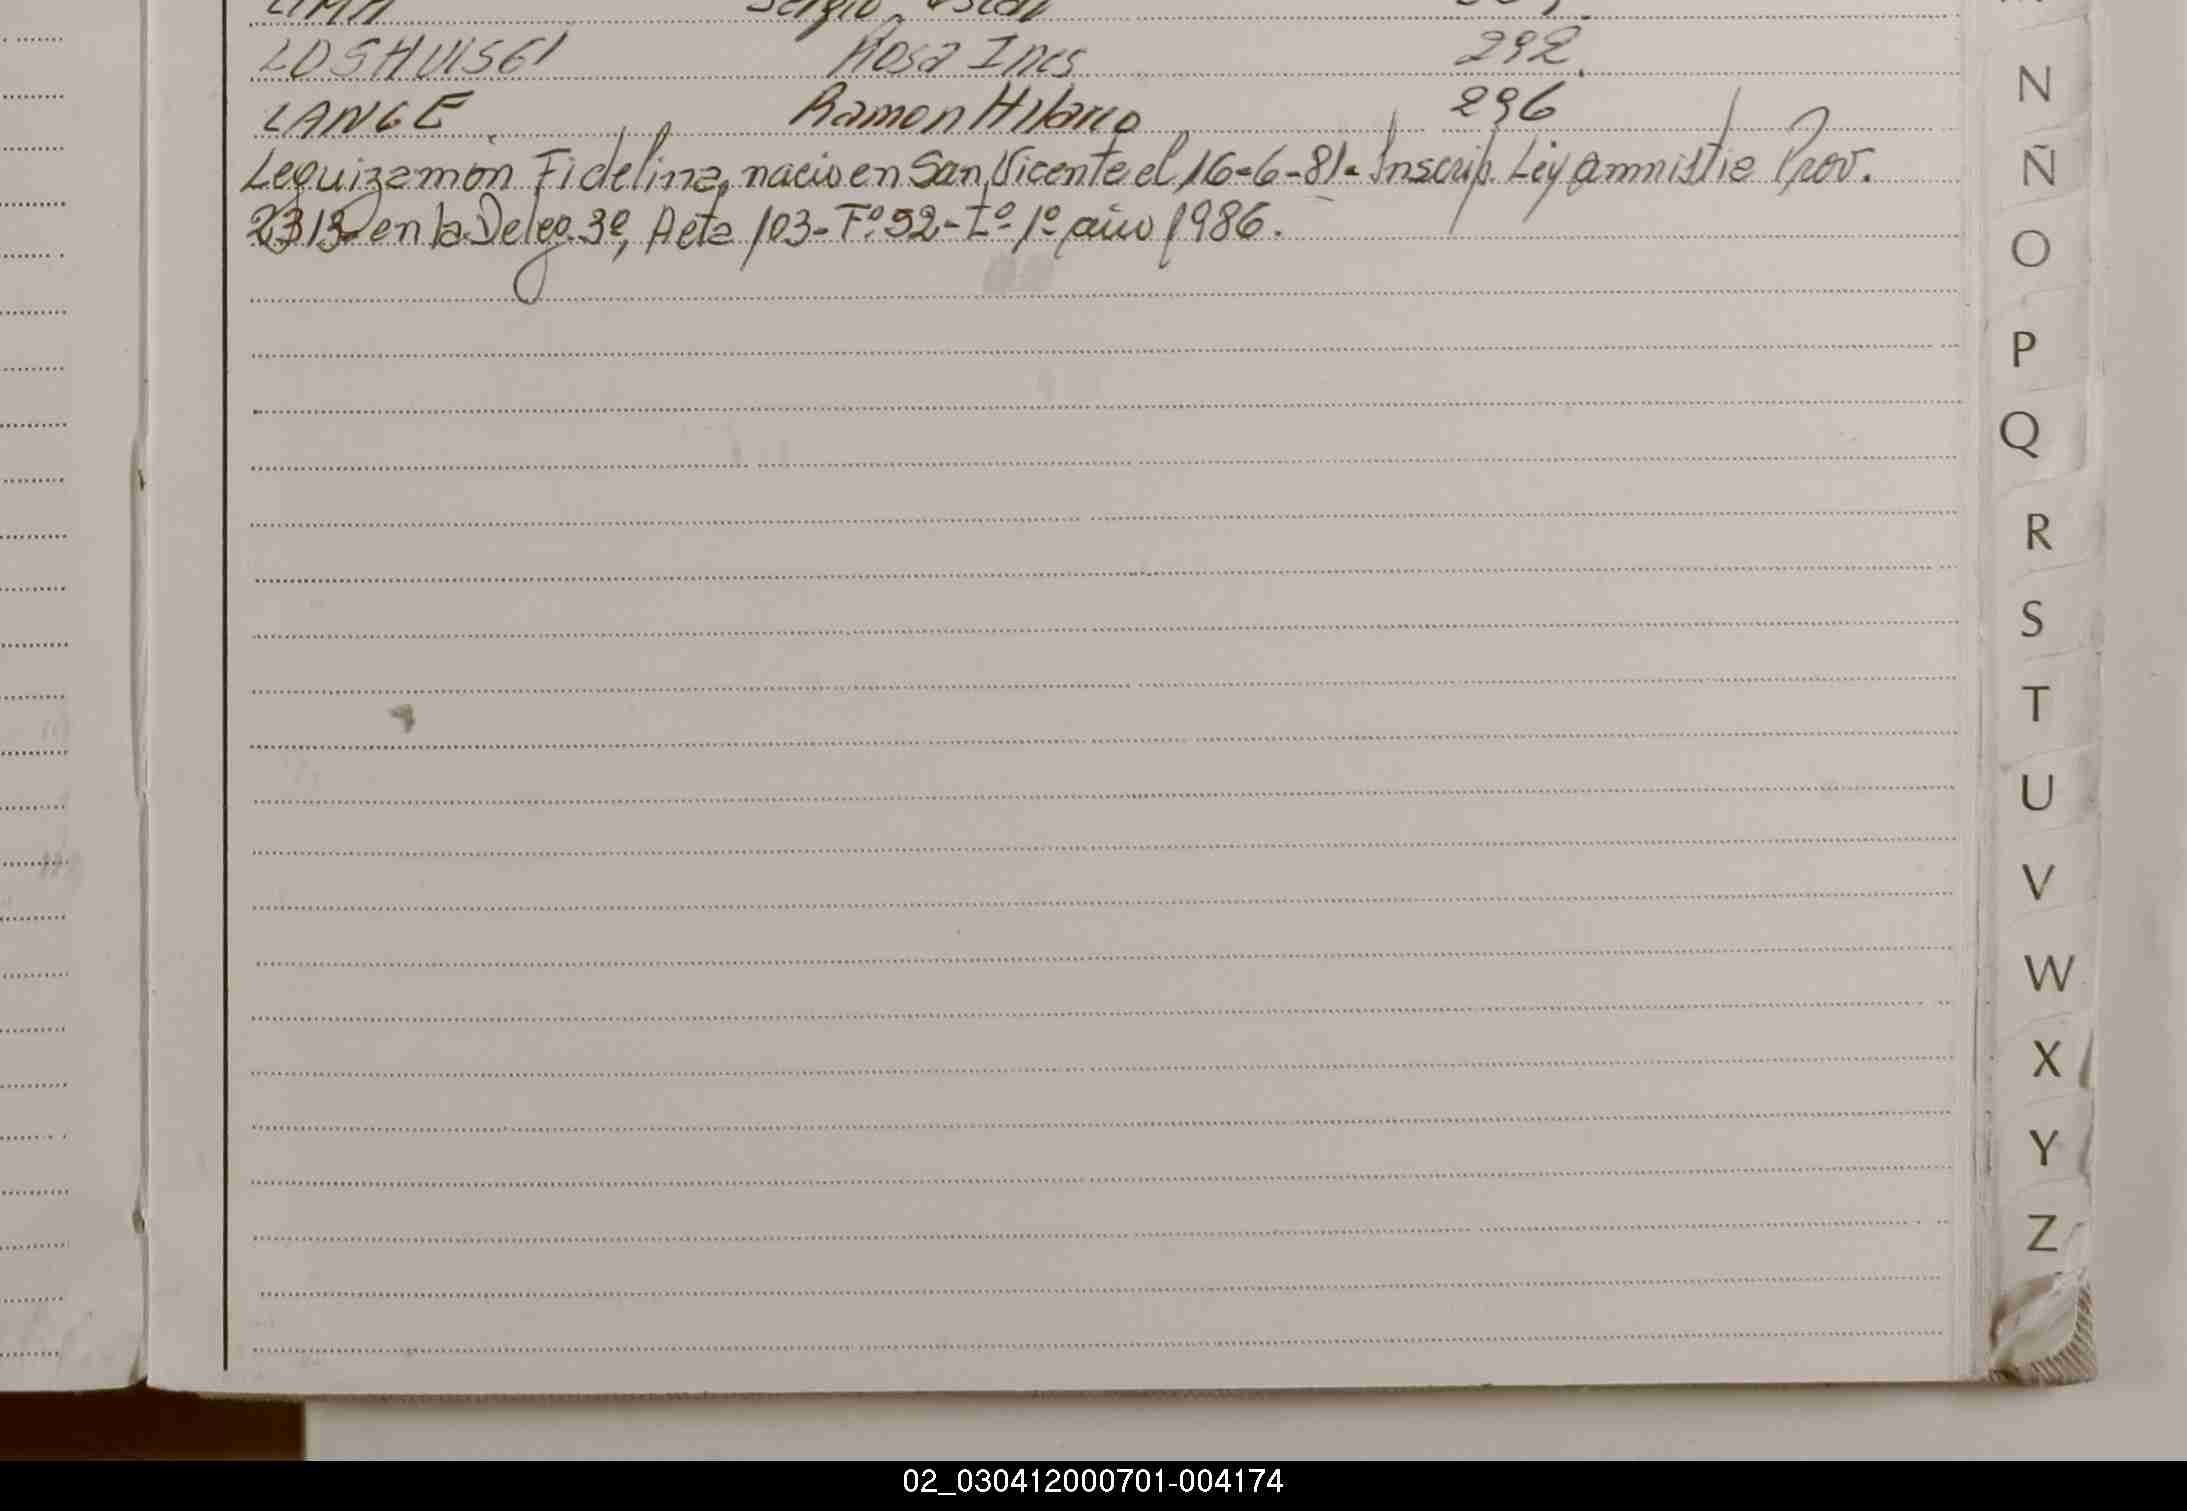 LIMA Sergio Oscar
LOSHUISGI Rosa Ines 292.
LANGE Ramon Hilario 296
Leguizamón Fidelina, nacio en San Vicente el 16-6-81- Inscrip. Ley amnistia Prov.
2313 en la Deleg. 3º, Acta 103- Fº.52-Tº-1º año 1986.
N
Ñ
O
P
Q
R
S
T
U
V
W
X
Y
Z
02_030412000701-004174